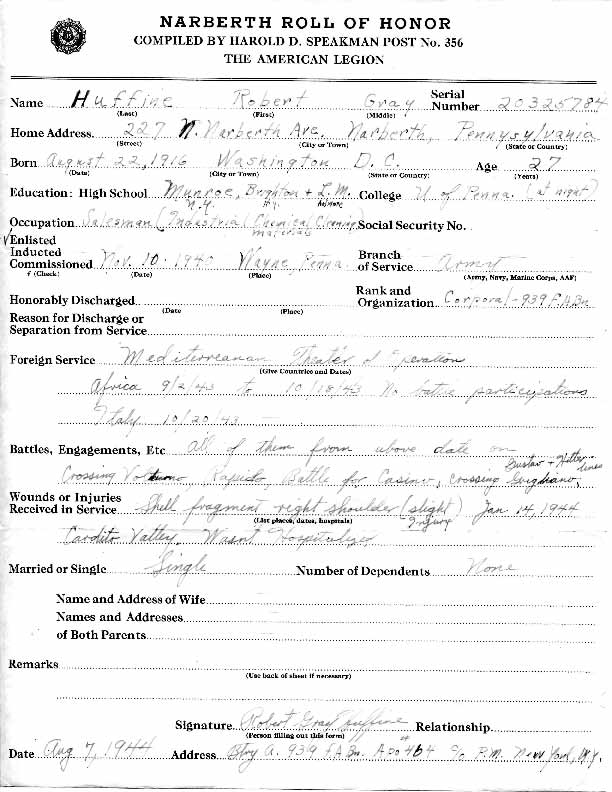 NARBERTH ROLL OF HONOR
COMPILED BY HAROLD D. SPEAKMAN POST No. 356
THE AMERICAN LEGION
Name Huffine Robert Gray Serial Number 20325784
(Last) (First) (Middle)
Home Address 227 N. Narberth Ave. Narberth, Pennsylvania
(Street) (City or Town) (State or Country)
Born August 22, 1916 Washington D. C. Age 27
(Date) (City or Town) (State or Country) (Years)
Education: High School Munroe, Brighton + L.M. College U of Penna. (at night)
N.Y. N.Y. Ardmore
Occupation Salesman (Industrial Chemical Cleaning Social Security No.
materials
√Enlisted
Inducted
Commissioned Nov. 10. 1940 Wayne Penna. Branch of Service Army
√ (Check) (Date) (Place) (Army, Navy, Marine Corps, AAF)
Honorably Discharged Rank and Organization Corporal-939 F.A.Bn
(Date (Place)
Reason for Discharge or
Separation from Service
Foreign Service Mediterreanan Theater of Operation
(Give Countries and Dates)
Africa 9/2/43 to 10/18/43 No battle participations
Italy 10/20/43 —
Battles, Engagements, Etc All of them from above date on
Gustav + Hitler lines
Crossing Volturno, Rapido, Battle for Casino, crossing
Wounds or Injuries
Received in Service Shell fragment right shoulder (slight) Jan 14, 1944
(List places, dates, hospitals) injury
Cardito Valley, Wasnt Hospitalized
Married or Single Single Number of Dependents None
Name and Address of Wife
Names and Addresses
of Both Parents
Remarks
(Use back of sheet if necessary)
Signature Robert Gray Huffine Relationship
(Person filling out this form)
Date Aug 7, 1944 Address Btry A. 939 F.A.Bn. APO #464 c/o P.M. New York, N.Y.